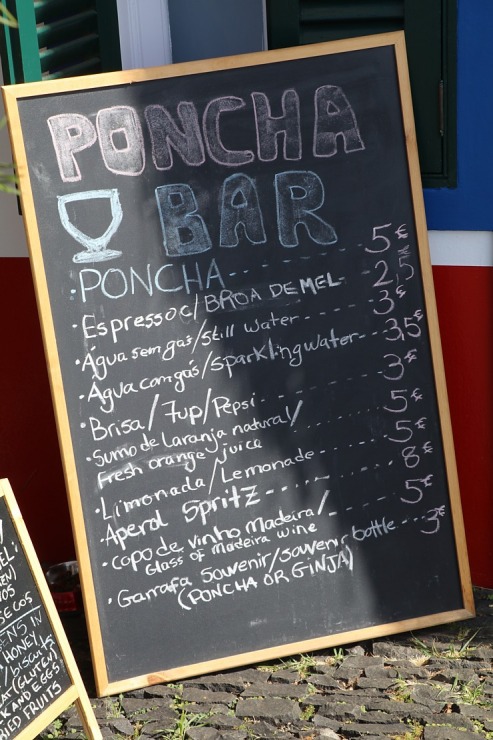 PONCHA
BAR
·PONCHA------- 5€
·Espresso c/BROA DE MEL- 2,5
·Água sem gás/still water--- 3€
·Água com gás/sparkling water-- 3,5€
·Brisa/7up/Pepsi------ 3€
·Sumo de Laranja natural/ ----- 5€
Fresh orange juice
·Limonada/Lemonade----- 5€
·Aperol Spritz------ 8€
·copo de vinho Madeira/---- 5€
Glass of Madeira wine
·Garrafa Souvenir/souvenir bottle--- 3€
(PONCHA OR GINJA)
HONEY
(GLUTEN)
AND EGGS
FRUITS